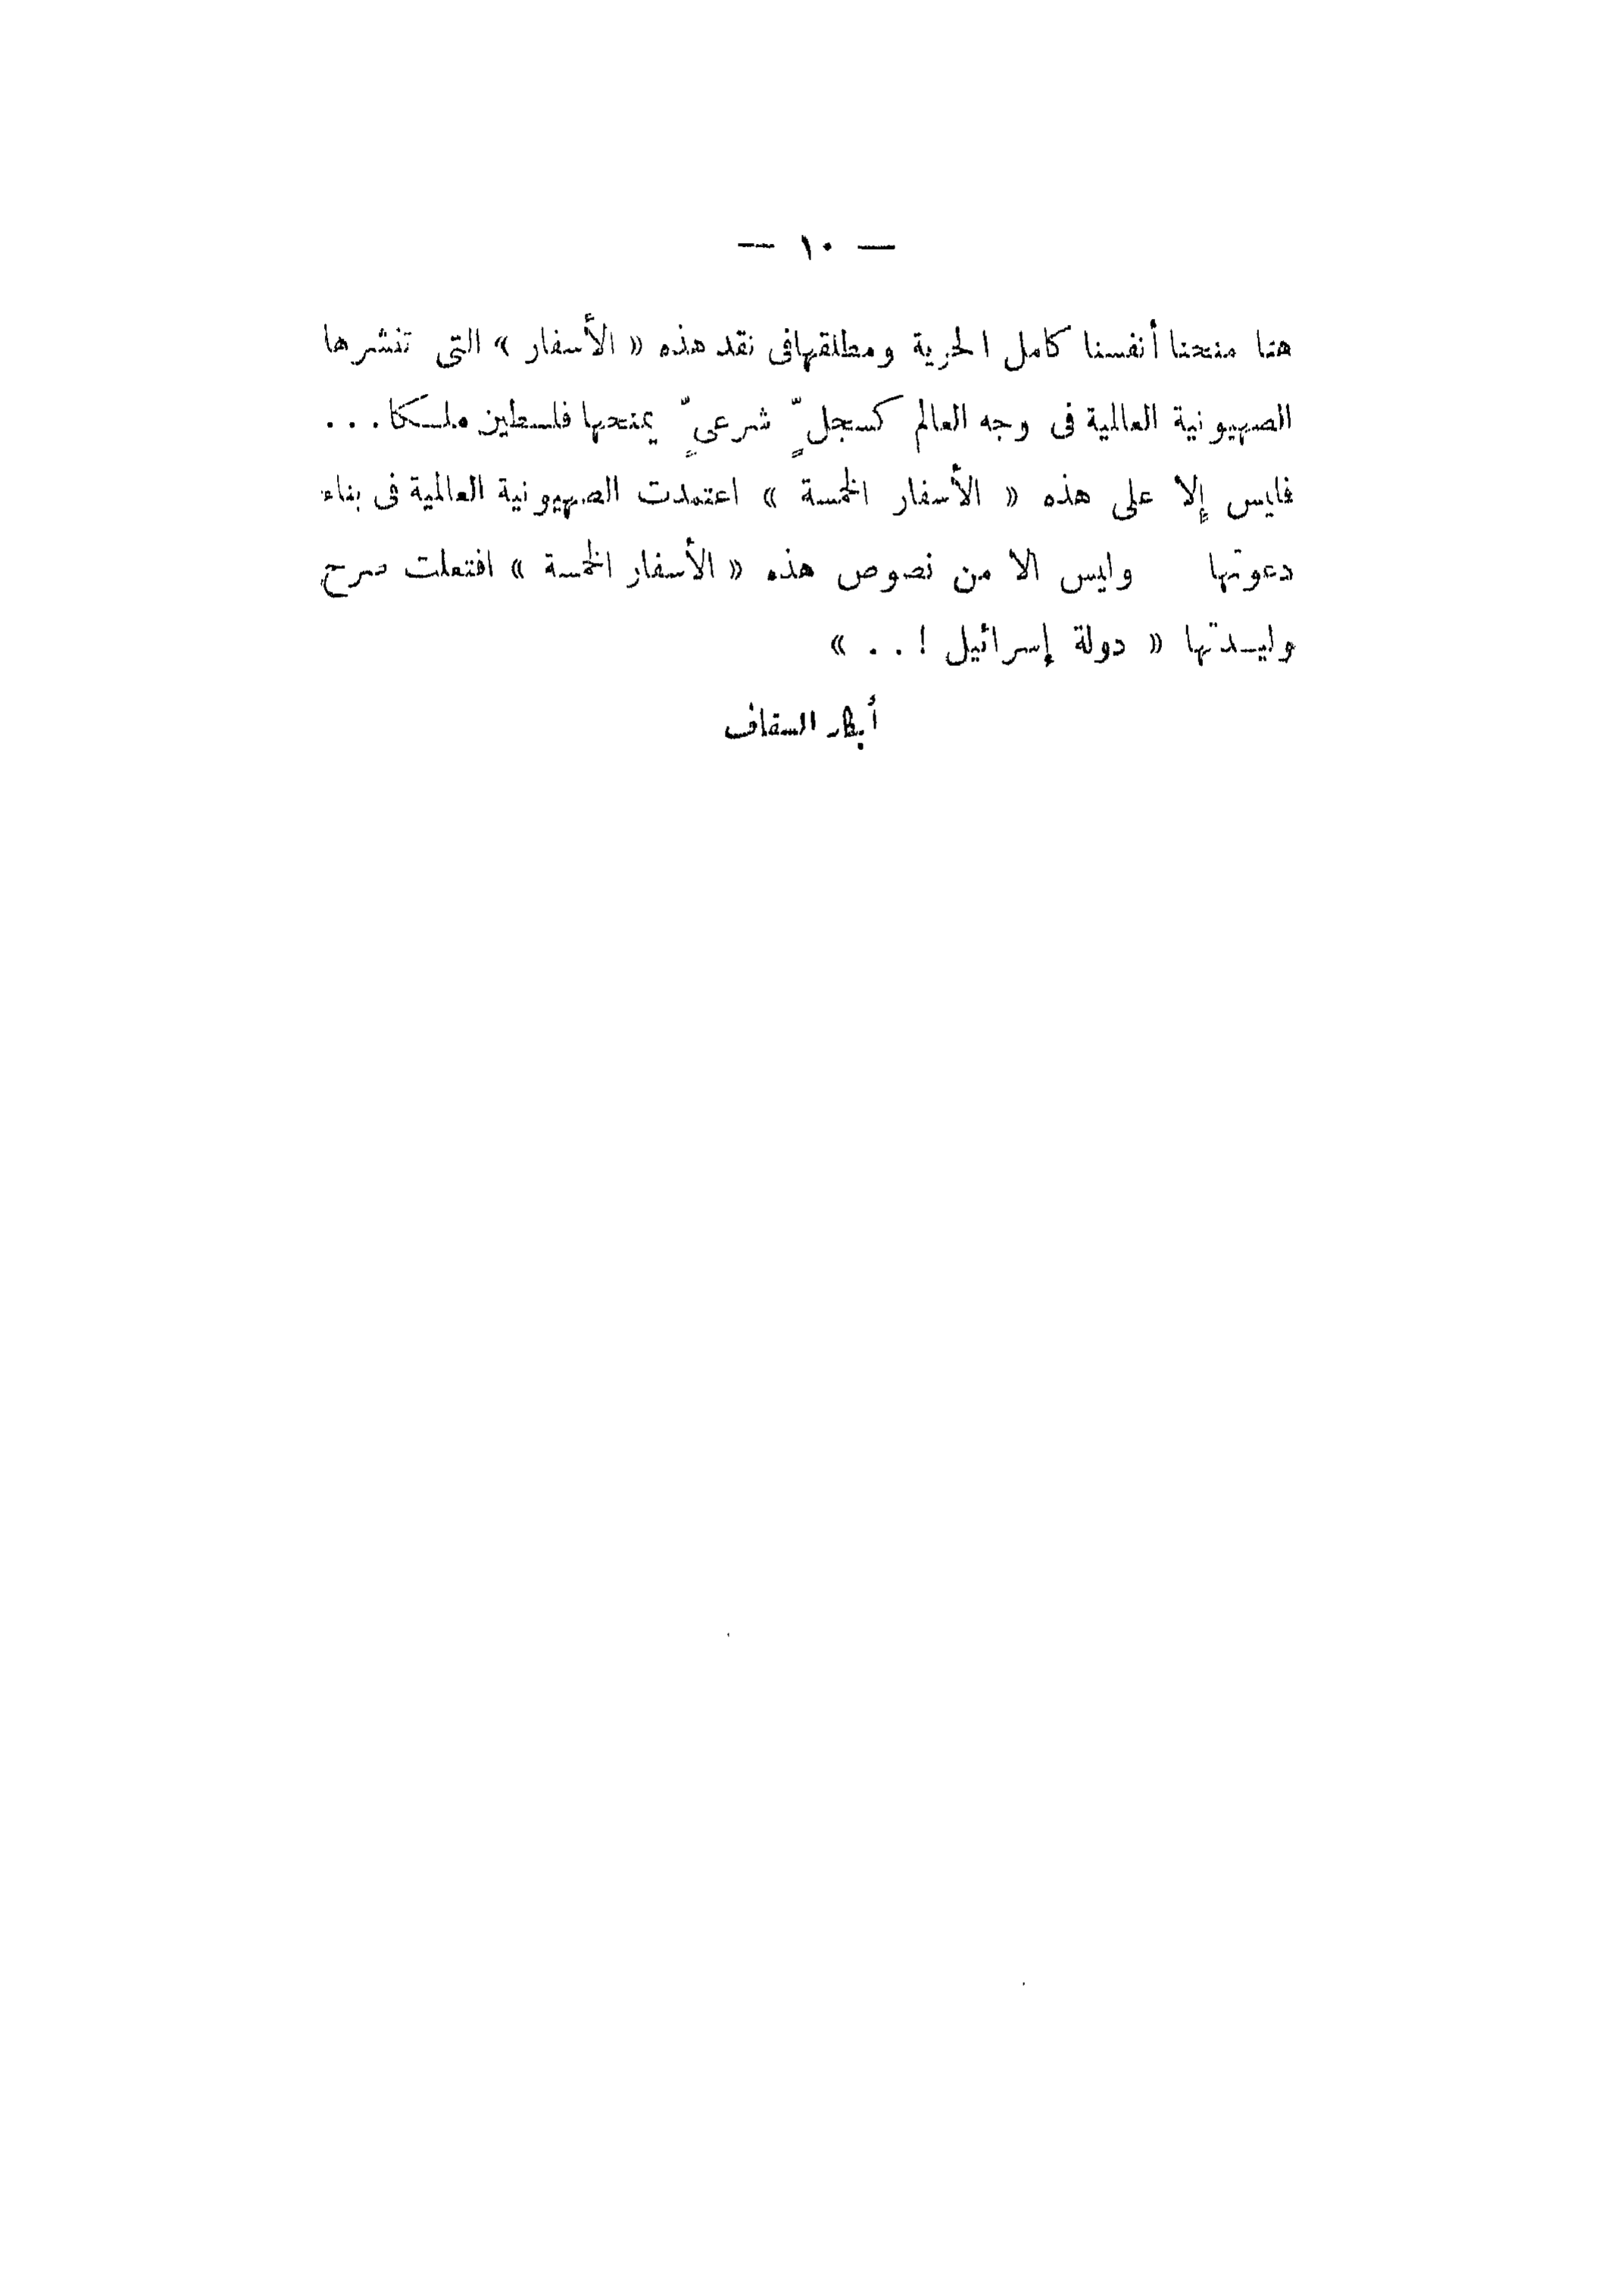 — ١٠ —
هنا منحنا أنفسنا كامل الحرية ومطلقها فى نقد هذه « الأسفار » التى تنشرها
الصهيونية العالمية فى وجه العالم كسجلٍّ شرعىٍّ يمنحها فلسطين ملكا . . .
فليس إلا على هذه « الأسفار الخمسة » اعتمدت الصهيونية العالمية فى بناء
دعوتها وليس الا من نصوص هذه « الأسفار الخمسة » افتعلت صرح
وليدتها « دولة إسرائيل ! . . »
أبكار السقاف